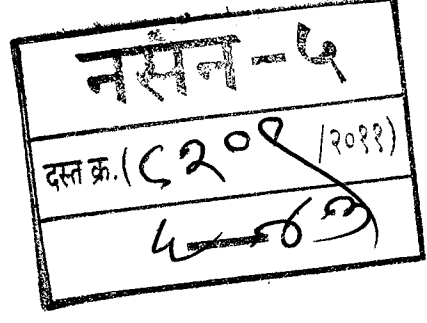 नसन-५
दस्त क्र.(८२०९/२०११)
५—७३